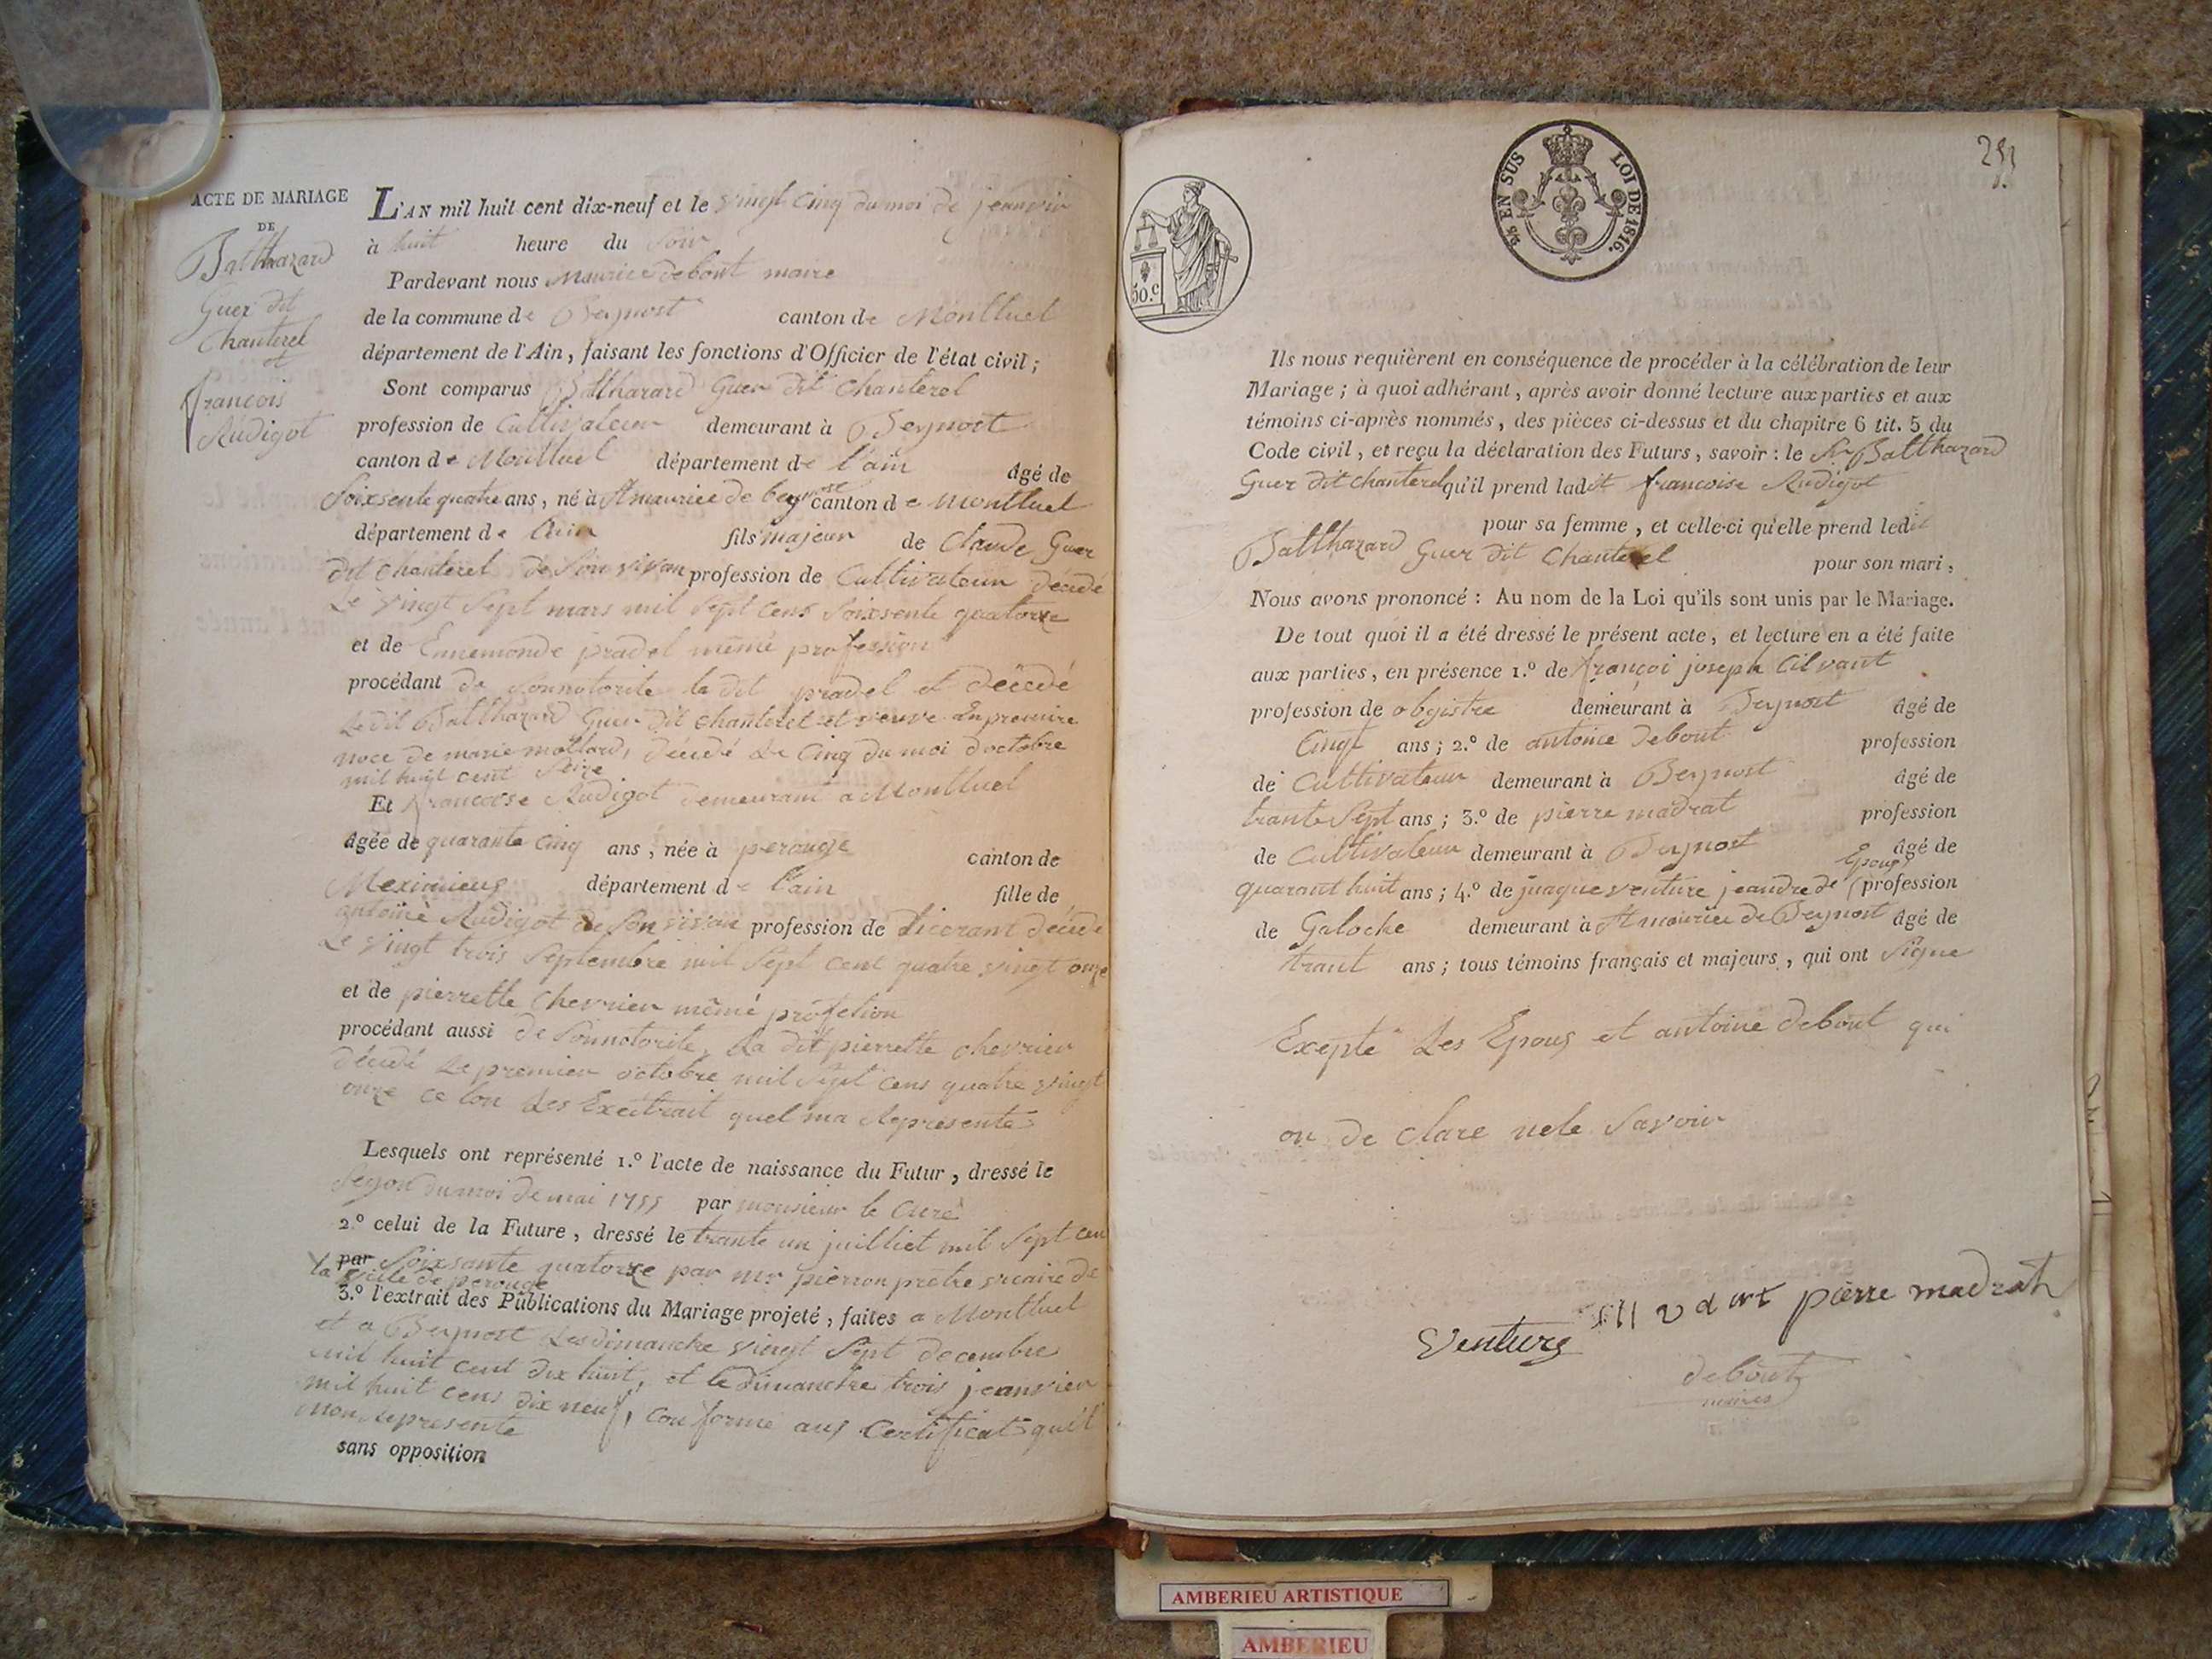 ACTE DE MARIAGE
DE
Balthazard
Guer dit
Chanterel
et
francois
Rudigot
L'AN mil huit cent dix-neuf et le vingt cinq du moi de jeanvier
à huit heure du soir
Pardevant nous Maurice debout maire
de la commune de Beynost canton de Montluel
département de l'Ain, faisant les fonctions d'Officier de l'état civil;
Sont comparus Balthazard Guer dit Chanterel
profession de Cultivateur demeurant à Beynost
canton de Montluel département de l'ain âgé de
Soixsente quatre ans, né à St maurice de beynost canton de montluel
département de l'ain fils majeur de Claude Guer
dit Chanterel de Son vivan profession de Cultivateur décédé
Le vingt Sept mars mil Sept cens Soixsente quatorze
et de Ennemonde pradel même profession
procédant de Sonnotorite la dit pradel et décédé
Le dit Balthazard Guer dit chanterel et veuve En premire
noce de marie mollard, décédé Le Cinq du moi doctobre
mil huit cent Seize
Et francoise Rudigot demeurant a Montluel
âgée de quarante cinq ans, née à perouge canton de
Meximieug département de l'ain fille de
antoine Rudigot de Son vivan profession de décédé
Le vingt trois Septembre mil Sept cent quatre vingt onze
et de pierrette Chevrier même profetion
procédant aussi de Sonnotorite, La dit pierrette chevrier
décédé Le premier octobre mil Sept cens quatre vingt
onze ce lon Les Exeitrait quel ma Représenté
Lesquels ont représenté 1.º l'acte de naissance du Futur, dressé le
Segon du moi de mai 1755 par monsieur le Curé
2.º celui de la Future, dressé le trante un juilliet mil Sept cen
par Soixsante quatorze par mr pierron prêtre vicaire de
la ville de perouge
3.º l'extrait des Publications du Mariage projeté, faites a Montluel
et a Beynost Les dimanche vingt Sept decembre
mil huit cent dix huit, et le Dimanche trois jeanvier
mil huit cens dix neuf, Conforme aus Certificat qu'il
mon représente
sans opposition
251
2/5 EN SUS LOI DE 1816.
50.c
Ils nous requièrent en conséquence de procéder à la célébration de leur
Mariage; à quoi adhérant, après avoir donné lecture aux parties et aux
témoins ci-après nommés, des pièces ci-dessus et du chapitre 6 tit. 5 du
Code civil, et reçu la déclaration des Futurs, savoir: le Sr Balthazard
Guer dit chanterel qu'il prend ladit francoise Rudigot
pour sa femme, et celle-ci qu'elle prend ledit
Balthazard Guer dit Chanterel pour son mari,
Nous avons prononcé: Au nom de la Loi qu'ils sont unis par le Mariage.
De tout quoi il a été dressé le présent acte, et lecture en a été faite
aux parties, en présence 1.º de françoi joseph Cilvant
profession de obgistre demeurant à Beynost âgé de
Cingt ans; 2.º de antoine debout profession
de Cultivateur demeurant à Beynost âgé de
trante Sept ans; 3.º de pierre madrat profession
de Cultivateur demeurant à Beynost âgé de
quarant huit ans; 4.º de juaque venture jeandre de Epous profession
de Galoche demeurant à St maurice de Beynost âgé de
trant ans; tous témoins français et majeurs, qui ont Signe
Exepté Les Epous et antoine debout qui
on de clare nele Savoir
pierre madrat
Venture
debout
maire
AMBERIEU ARTISTIQUE
AMBERIEU